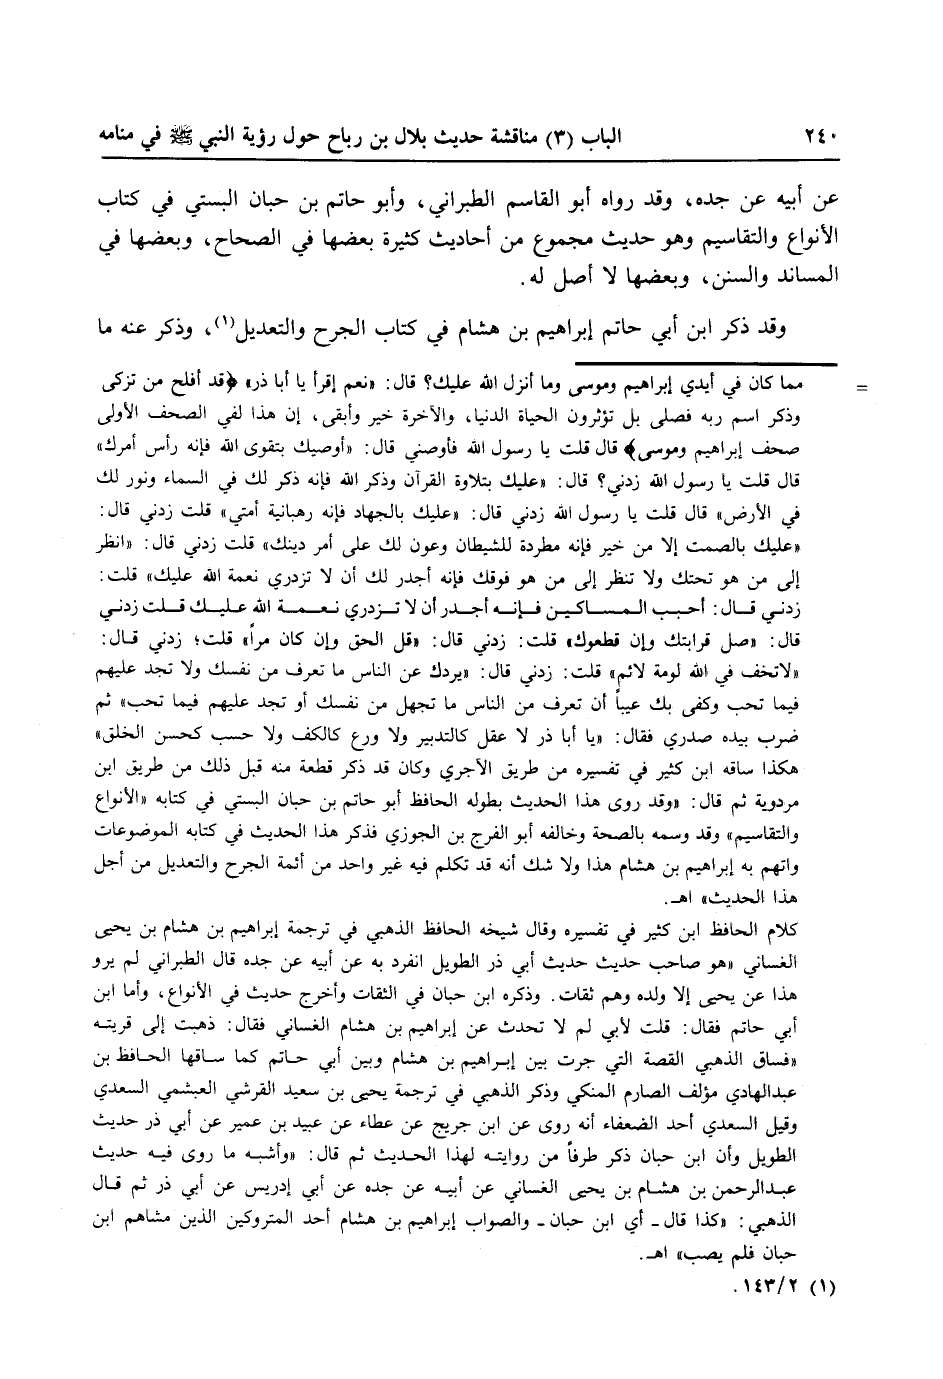 ٢٤٠ الباب (٣) مناقشة حديث بلال بن رباح حول رؤية النبي ﷺ في منامه
عن أبيه عن جده، وقد رواه أبو القاسم الطبراني، وأبو حاتم بن حبان البستي في كتاب
الأنواع والتقاسيم وهو حديث مجموع من أحاديث كثيرة بعضها في الصحاح، وبعضها في
المساند والسنن، وبعضها لا أصل له.
وقد ذكر ابن أبي حاتم إبراهيم بن هشام في كتاب الجرح والتعديل(١)، وذكر عنه ما
= مما كان في أيدي إبراهيم وموسى وما أنزل الله عليك؟ قال: «نعم إقرأ يا أبا ذر» ﴿قد أفلح من تزكى
وذكر اسم ربه فصلى بل تؤثرون الحياة الدنيا، والآخرة خير وأبقى، إن هذا لفي الصحف الأولى
صحف إبراهيم وموسى﴾ قال قلت يا رسول الله فأوصني قال: «أوصيك بتقوى الله فإنه رأس أمرك»
قال قلت يا رسول الله زدني؟ قال: «عليك بتلاوة القرآن وذكر الله فإنه ذكر لك في السماء ونور لك
في الأرض» قال قلت يا رسول الله زدني قال: «عليك بالجهاد فإنه رهبانية أمتي» قلت زدني قال:
«عليك بالصمت إلا من خير فإنه مطردة للشيطان وعون لك على أمر دينك» قلت زدني قال: «انظر
إلى من هو تحتك ولا تنظر إلى من هو فوقك فإنه أجدر لك أن لا تزدري نعمة الله عليك» قلت:
زدني قال: أحبب المساكين فإنه أجدر أن لا تزدري نعمة الله عليك قلت زدني
قال: «صل قرابتك وإن قطعوك» قلت: زدني قال: «قل الحق وإن كان مراً» قلت؛ زدني قال:
«لاتخف في الله لومة لائم» قلت: زدني قال: «يردك عن الناس ما تعرف من نفسك ولا تجد عليهم
فيما تحب وكفى بك عيباً أن تعرف من الناس ما تجهل من نفسك أو تجد عليهم فيما تحب» ثم
ضرب بيده صدري فقال: «يا أبا ذر لا عقل كالتدبير ولا ورع كالكف ولا حسب كحسن الخلق»
هكذا ساقه ابن كثير في تفسيره من طريق الآجري وكان قد ذكر قطعة منه قبل ذلك من طريق ابن
مردوية ثم قال: «وقد روى هذا الحديث بطوله الحافظ أبو حاتم بن حبان البستي في كتابه «الأنواع
والتقاسيم» وقد وسمه بالصحة وخالفه أبو الفرج بن الجوزي فذكر هذا الحديث في كتابه الموضوعات
واتهم به إبراهيم بن هشام هذا ولا شك أنه قد تكلم فيه غير واحد من أئمة الجرح والتعديل من أجل
هذا الحديث» اهـ.
كلام الحافظ ابن كثير في تفسيره وقال شيخه الحافظ الذهبي في ترجمة إبراهيم بن هشام بن يحيى
الغساني «هو صاحب حديث حديث أبي ذر الطويل انفرد به عن أبيه عن جده قال الطبراني لم يرو
هذا عن يحيى إلا ولده وهم ثقات. وذكره ابن حبان في الثقات وأخرج حديث في الأنواع، وأما ابن
أبي حاتم فقال: قلت لأبي لم لا تحدث عن إبراهيم بن هشام الغساني فقال: ذهبت إلى قريته
«فساق الذهبي القصة التي جرت بين إبراهيم بن هشام وبين أبي حاتم كما ساقها الحافظ بن
عبدالهادي مؤلف الصارم المنكي وذكر الذهبي في ترجمة يحيى بن سعيد القرشي العبشمي السعدي
وقيل السعدي أحد الضعفاء أنه روى عن ابن جريج عن عطاء عن عبيد بن عمير عن أبي ذر حديث
الطويل وأن ابن حبان ذكر طرفاً من روايته لهذا الحديث ثم قال: «وأشبه ما روى فيه حديث
عبدالرحمن بن هشام بن يحيى الغساني عن أبيه عن جده عن أبي إدريس عن أبي ذر ثم قال
الذهبي: «كذا قال ـ أي ابن حبان ـ والصواب إبراهيم بن هشام أحد المتروكين الذين مشاهم ابن
حبان فلم يصب» اهـ.
(١) ١٤٣/٢.